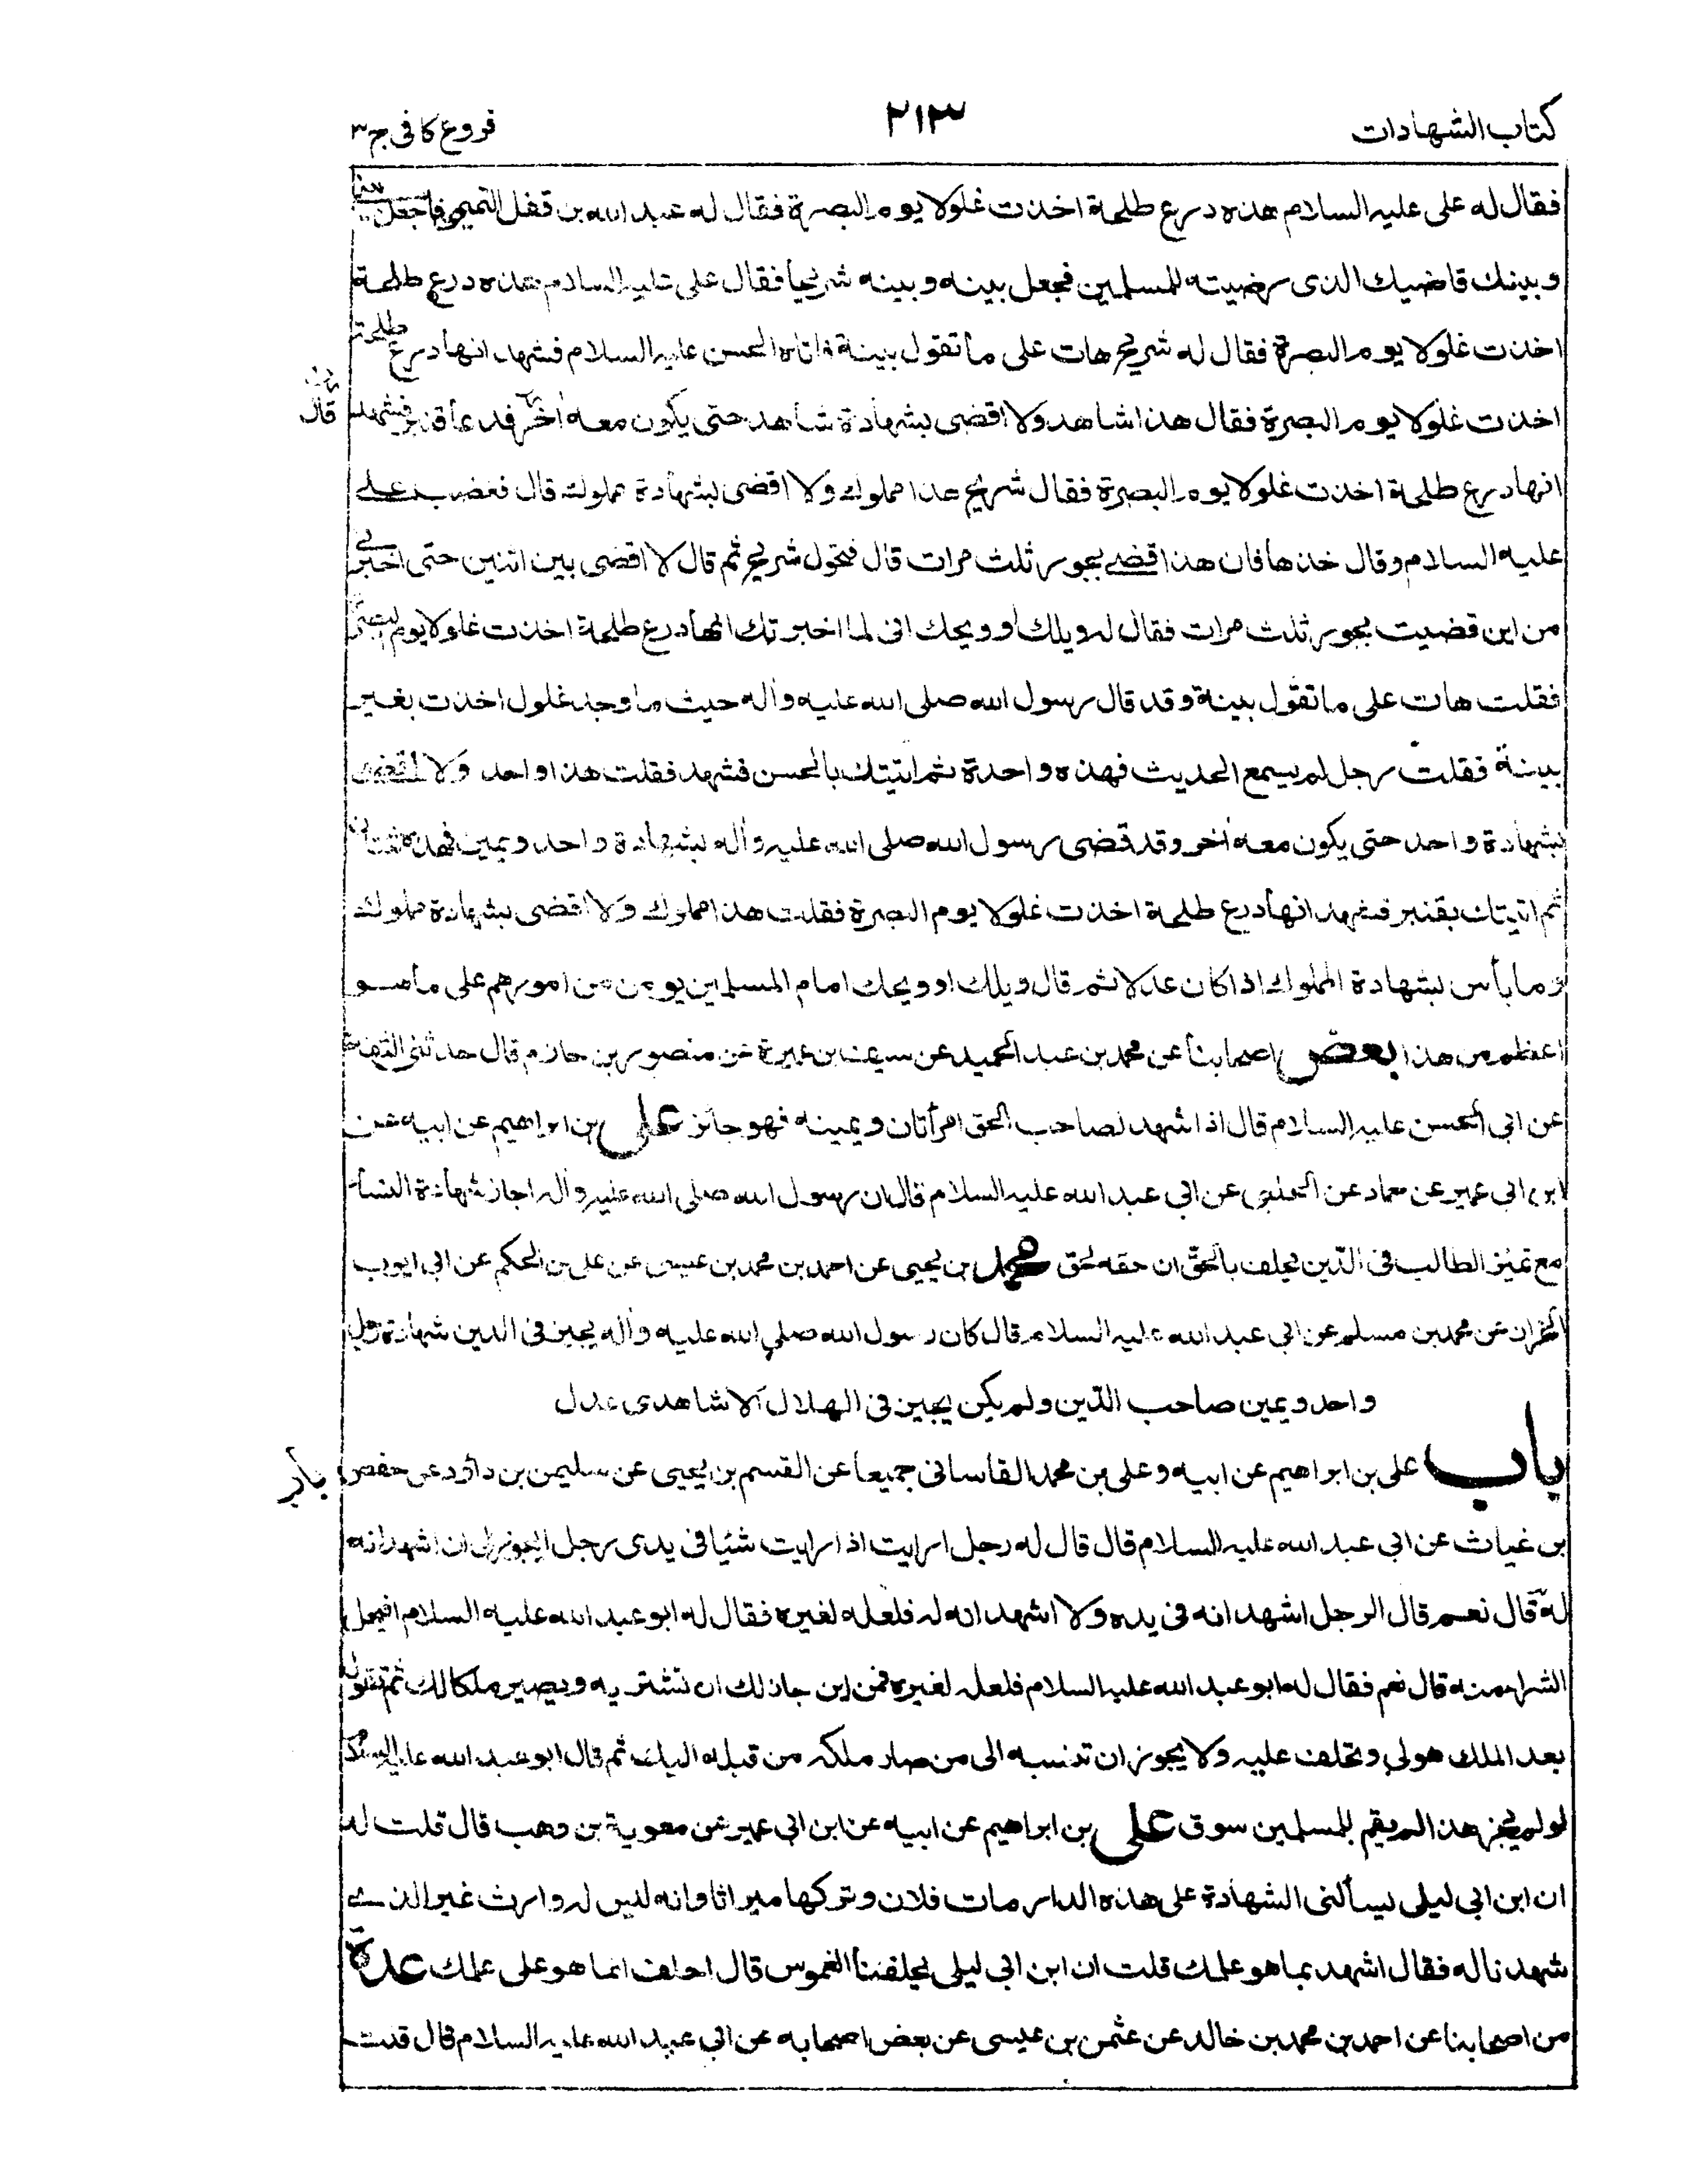 كتاب الشهادات
٢١٣
فروع كافى ج٣
فقال له على عليه السلام هذه درع طلحة اخذت غلولا يوم البصرة فقال له عبد الله بن قفل التميمى فاجعل بينى
وبينك قاضيك الذى رضيته للمسلمين فجعل بينه وبينه شريحا فقال على عليه السلام هذه درع طلحة
اخذت غلولا يوم البصرة فقال له شريح هات على ما تقول بينة فاتاه الحسن عليه السلام فشهد انها درع طلحة
اخذت غلولا يوم البصرة فقال هذا شاهد ولا اقضى بشهادة شاهد حتى يكون معه اخر فدعا قنبر فشهد
قال
انها درع طلحة اخذت غلولا يوم البصرة فقال شريح هذا مملوك ولا اقضى بشهادة مملوك قال فغضب على
عليه السلام وقال خذها فان هذا قضى بجور ثلث مرات قال فتحول شريح ثم قال لا اقضى بين اثنين حتى اخبرنى
من اين قضيت بجور ثلث مرات فقال له ويلك او ويحك انى لما اخبرتك انها درع طلحة اخذت غلولا يوم البصرة
فقلت هات على ما تقول بينة وقد قال رسول الله صلى الله عليه واله حيث ما وجد غلول اخذت بغير
بينة فقلت رجل لم يسمع الحديث فهذه واحدة ثم اتيتك بالحسن فشهد فقلت هذا واحد ولا اقضى
بشهادة واحد حتى يكون معه اخر وقد قضى رسول الله صلى الله عليه واله بشهادة واحد ويمين فهذه ثنتان
ثم اتيتك بقنبر فشهد انها درع طلحة اخذت غلولا يوم البصرة فقلت هذا مملوك ولا اقضى بشهادة مملوك
وما بأس بشهادة المملوك اذا كان عدلا ثم قال ويلك او ويحك امام المسلمين يومن من امورهم على ما هو
اعظم من هذا بعض اصحابنا عن محمد بن عبد الحميد عن سيف بن عميرة عن منصور بن حازم قال حدثنى الثقة
عن ابى الحسن عليه السلام قال اذا شهد لصاحب الحق امرأتان ويمينه فهو جائز على بن ابراهيم عن ابيه عن
ابن ابى عمير عن حماد عن الحلبى عن ابى عبد الله عليه السلام قال ان رسول الله صلى الله عليه واله اجاز شهادة النساء
مع تميز الطالب فى الدّين يحلف بالحقّ ان حقه لحق محمد بن يحيى عن احمد بن محمد بن عيسى عن على بن الحكم عن ابى ايوب
الخزاز عن محمد بن مسلم عن ابى عبد الله عليه السلام قال كان رسول الله صلى الله عليه واله يجيز فى الدين شهادة رجل
واحد ويمين صاحب الدّين ولم يكن يجيز فى الهلال الا شاهدى عدل
باب على بن ابراهيم عن ابيه وعلى بن محمد القاسانى جميعا عن القسم بن يحيى عن سليمن بن داؤد عن حفص
باب
بن غياث عن ابى عبد الله عليه السلام قال قال له رجل ارايت اذا رايت شئيا فى يدى رجل ايجوز لى ان اشهد انه
له قال نعم قال الرجل اشهد انه فى يده ولا اشهد انه له فلعله لغيره فقال له ابو عبد الله عليه السلام افيحل
الشراء منه قال نعم فقال له ابو عبد الله عليه السلام فلعله لغيره فمن اين جاز لك ان تشتريه ويصير ملكا لك ثم تقول
بعد الملك هو لى وتحلف عليه ولا يجوز ان تنسبه الى من صار ملكه من قبله اليك ثم قال ابو عبد الله عليه السلام
لو لم يجز هذا لم يقم للمسلمين سوق على بن ابراهيم عن ابيه عن ابن ابى عمير عن معوية بن وهب قال قلت له
ان ابن ابى ليلى يسألنى الشهادة على هذه الدار مات فلان وتركها ميراثا وانه ليس له وارث غير الذى
شهدنا له فقال اشهد بما هو علمك قلت ان ابن ابى ليلى يحلفنا الغموس قال احلف انما هو على علمك عدة
من اصحابنا عن احمد بن محمد بن خالد عن عثمن بن عيسى عن بعض اصحابه عن ابى عبد الله عليه السلام قال قلت